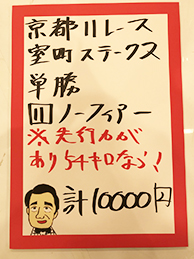 京都11レース
室町ステークス
単勝
11 ノーフィアー
※先行力が
あり54キロなら!
計10000円